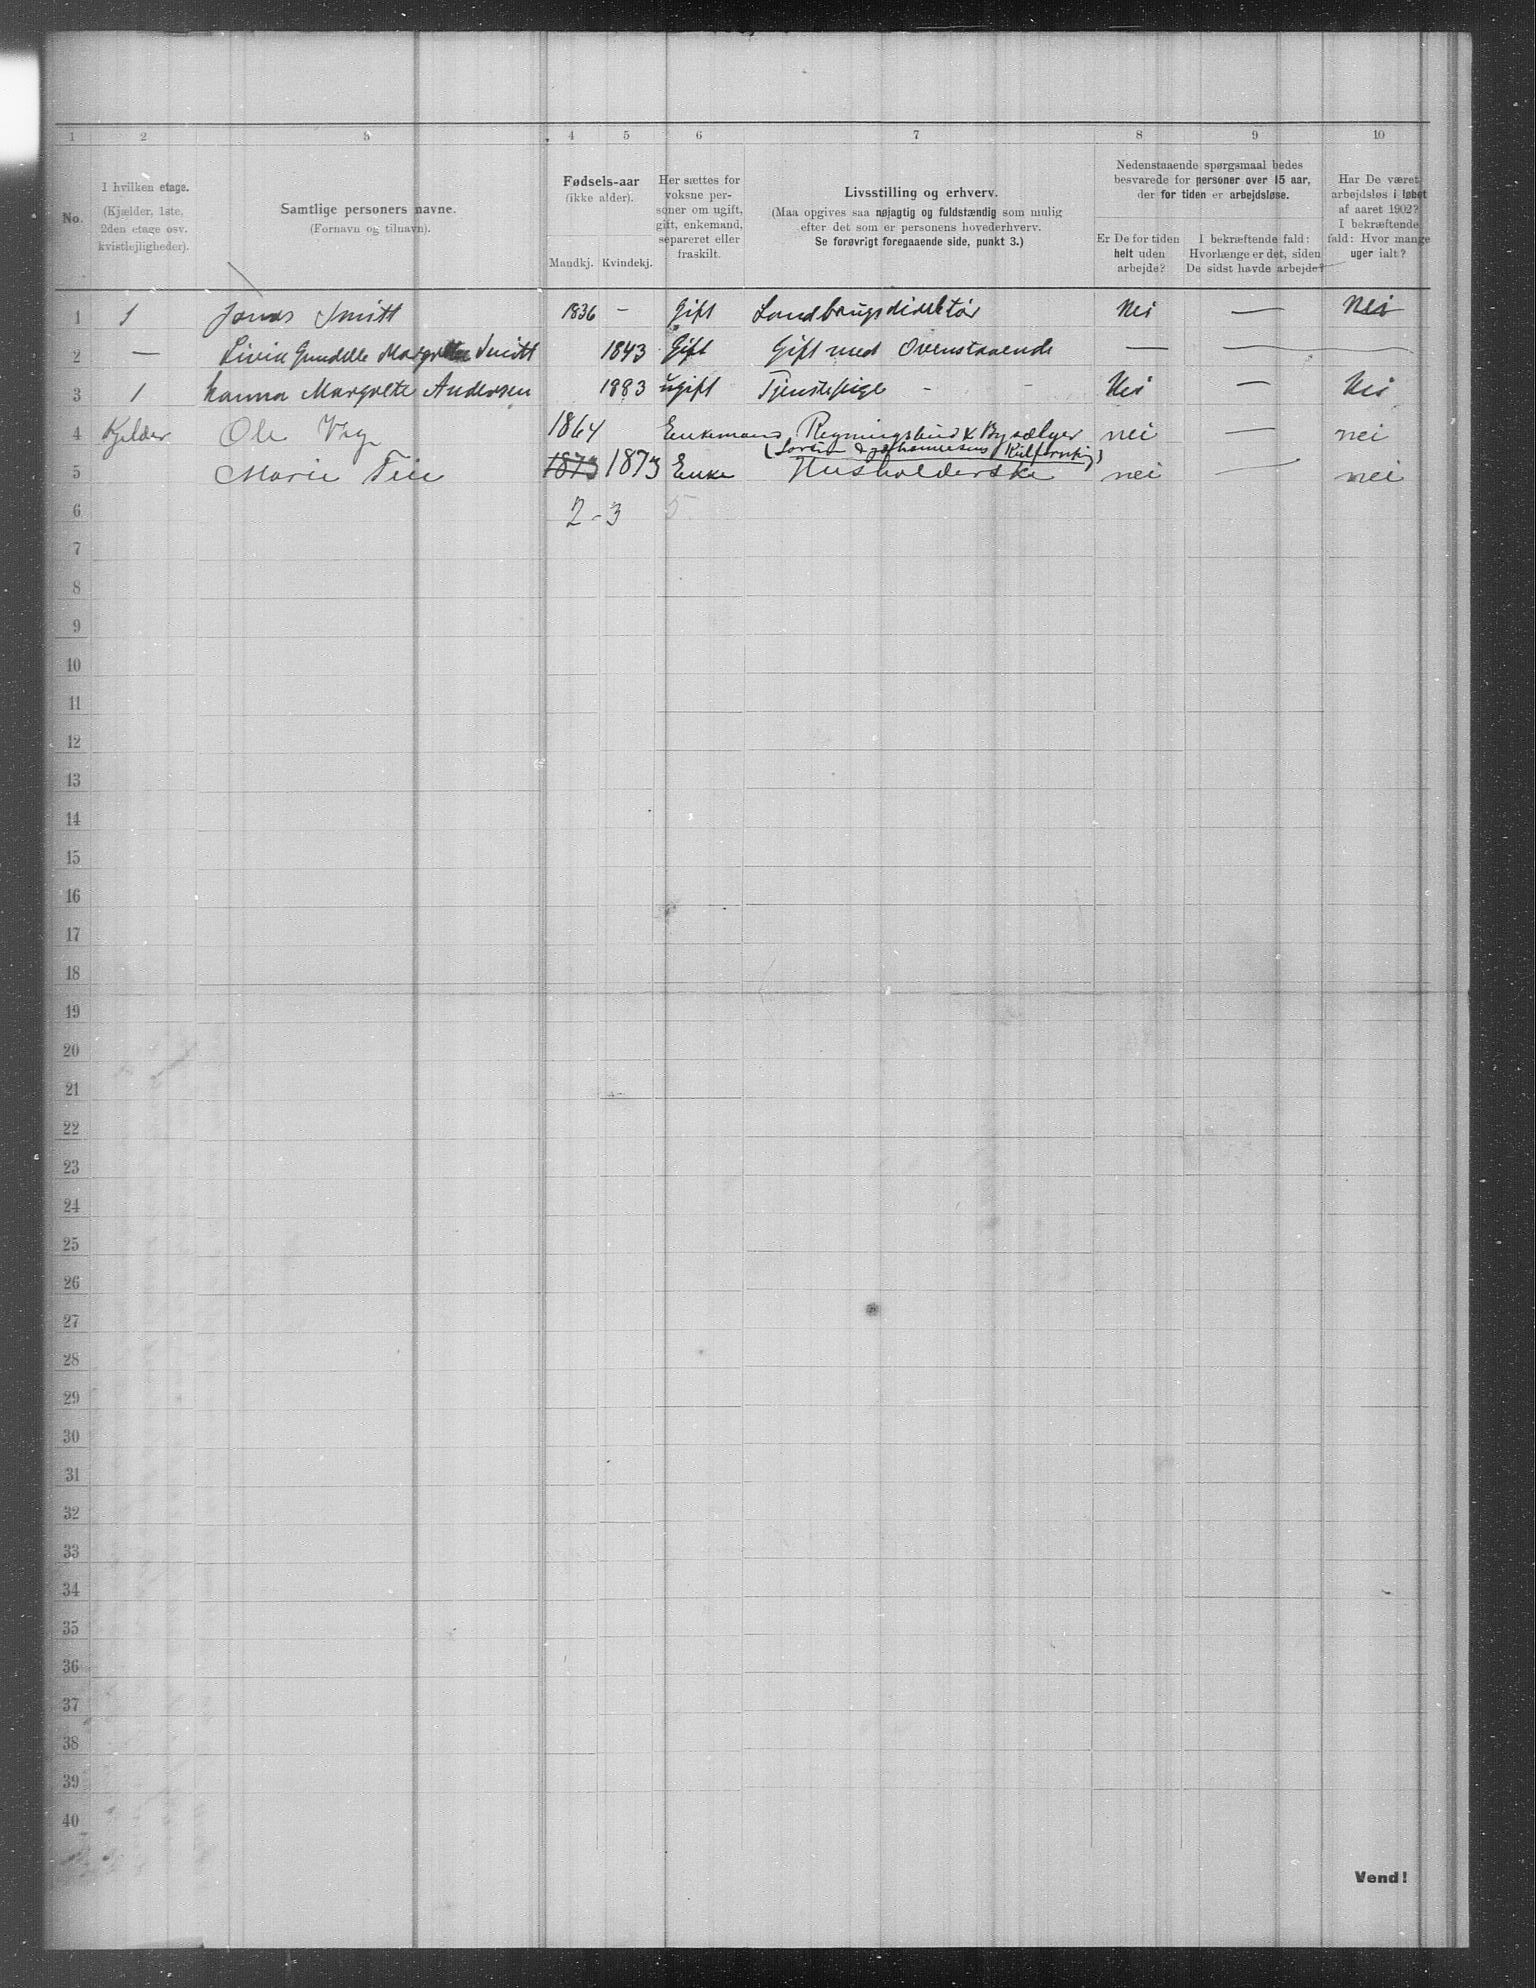 1 2 3 4 5 6 7 8 9 10
No.
I hvilken etage.
(Kjælder, 1ste,
2den etage osv.
kvistlejligheder).
Samtlige personers navne.
(Fornavn og tilnavn).
Fødsels-aar
(ikke alder).
Mandkj. Kvindekj.
Her sættes for
voksne per-
soner om ugift,
gift, enkemand,
separeret eller
fraskilt.
Livsstilling og erhverv.
(Maa opgives saa nøjagtig og fuldstændig som mulig
efter det som er personens hovederhverv.
Se forøvrigt foregaaende side, punkt 3.)
Nedenstaaende spørgsmaal bedes
besvarede for personer over 15 aar,
der for tiden er arbejdsløse.
Er De for tiden
helt uden
arbejde?
I bekræftende fald:
Hvorlænge er det, siden
De sidst havde arbejde?
Har De været
arbejdsløs i løbet
af aaret 1902?
I bekræftende
fald: Hvor mange
uger ialt?
1 1 Jonas Smitt 1836 — Gift Landbrugsdirektør Nei — Nei
2 — Livia Margrethe Smitt 1843 Gift Gift med Ovenstaaende — —
3 1 Hanna Margrete Andersen 1883 ugift Tjenestepige - - Nei — Nei
4 Kjelder Ole 1864 Enkemand Regningsbud & Bysælger nei — nei
5 Marie 1873 1873 Enke Husholderske nei — nei
6 2-3 5
7
8
9
10
11
12
13
14
15
16
17
18
19
20
21
22
23
24
25
26
27
28
29
30
31
32
33
34
35
36
37
38
39
40
Vend!